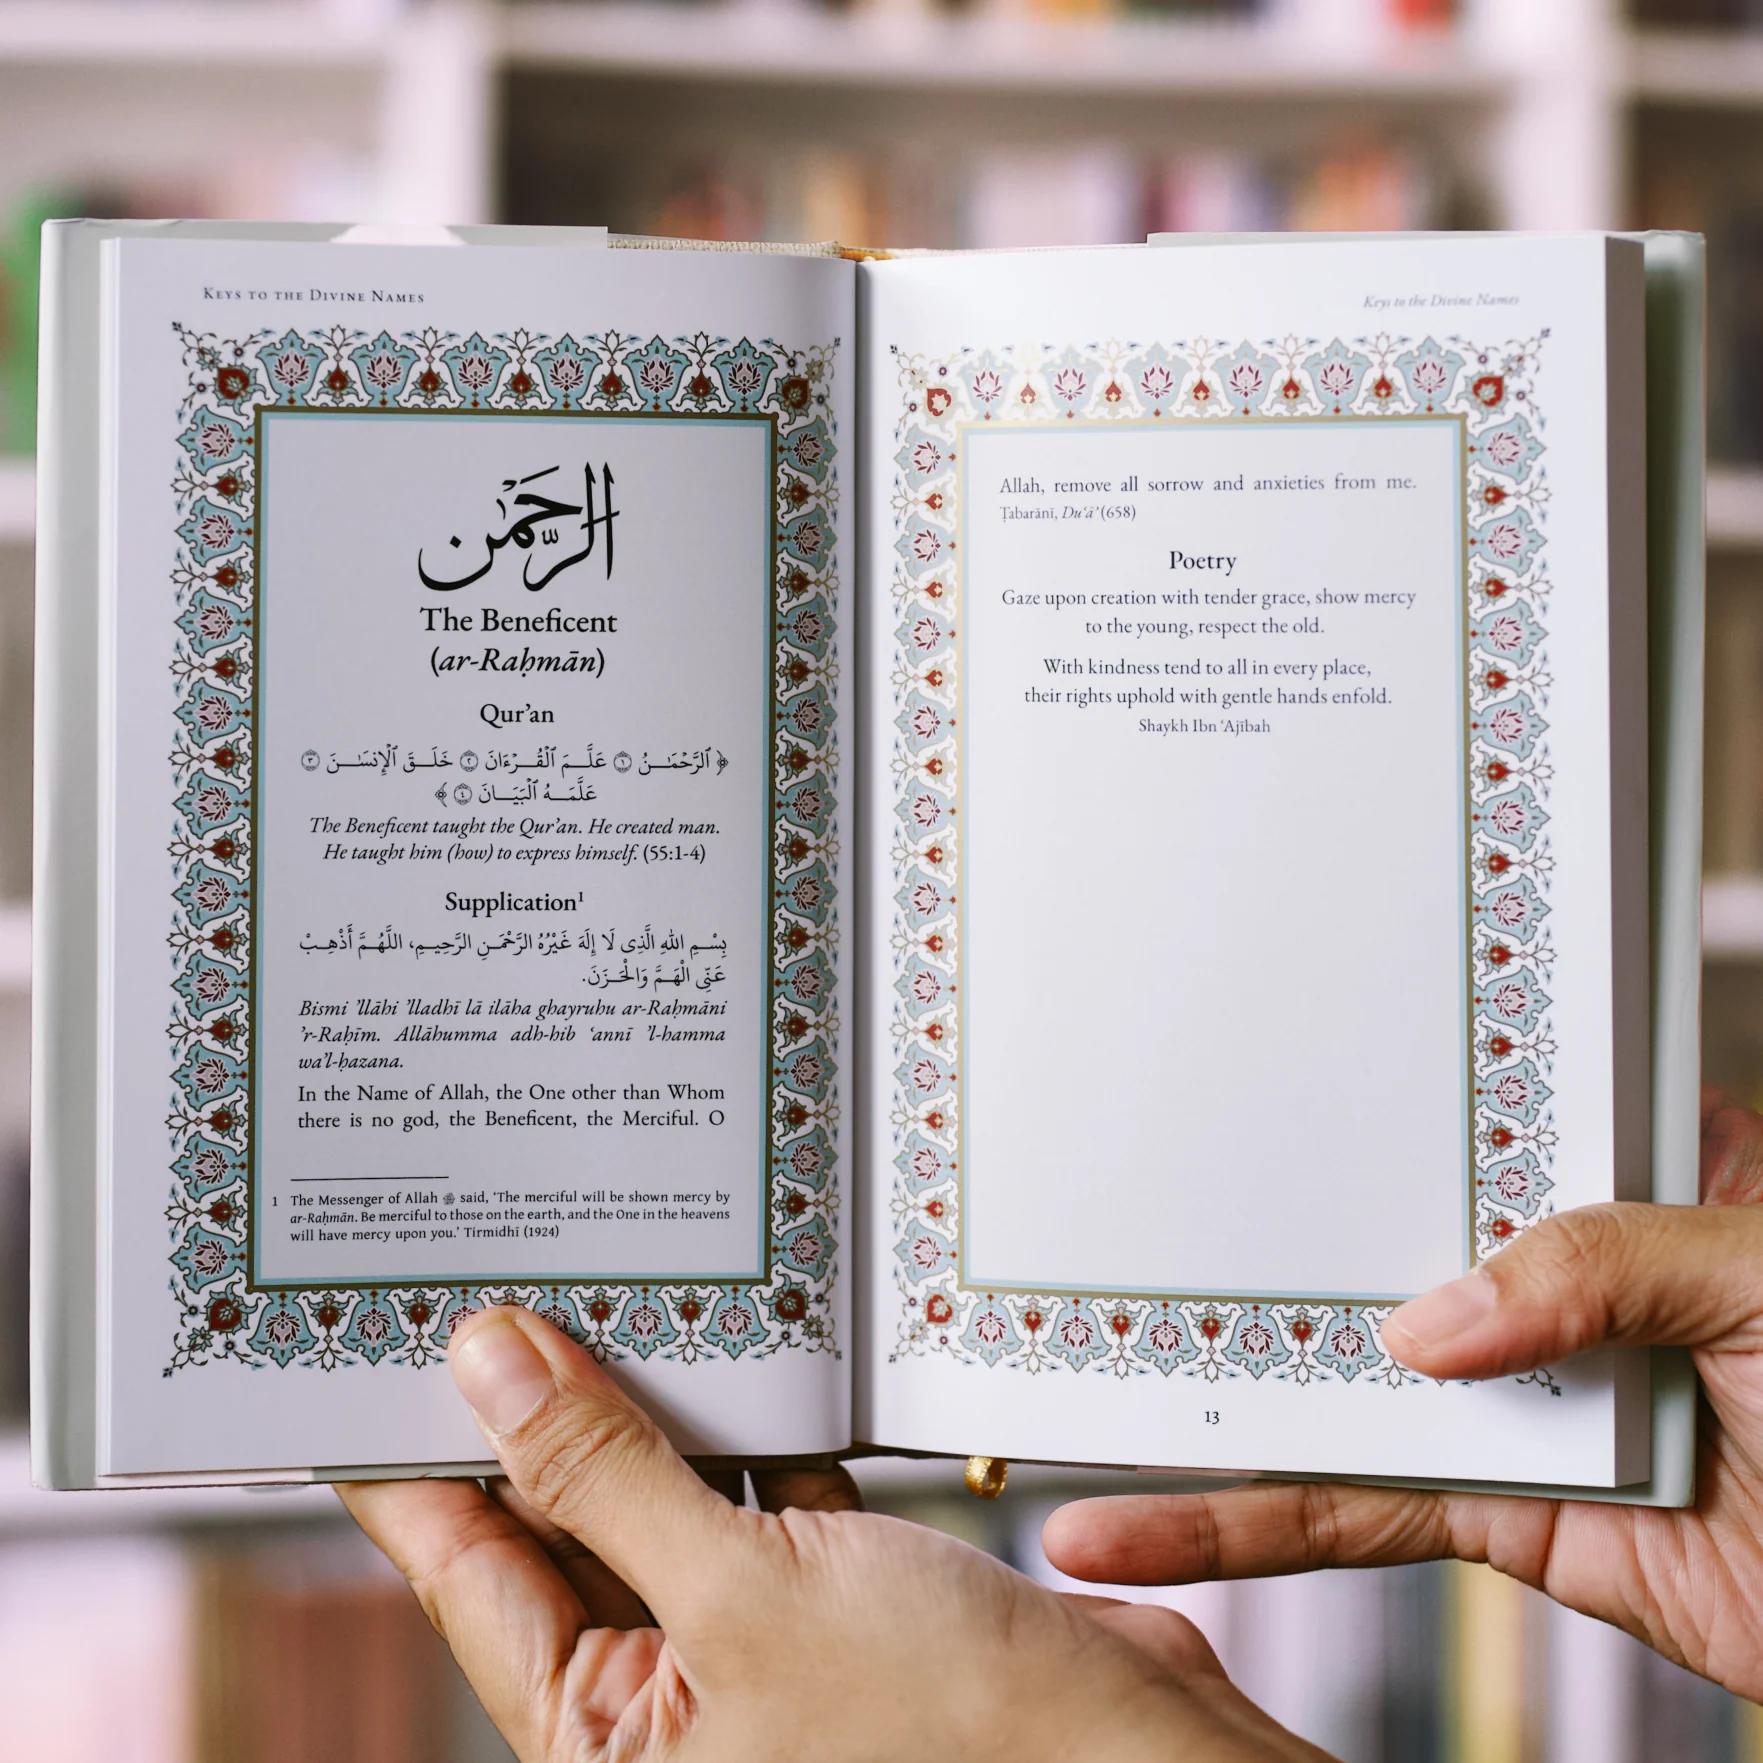 KEYS TO THE DIVINE NAMES
الرَّحْمٰن
The Beneficent
(ar-Raḥmān)
Qur’an
﴿ ٱلرَّحْمَـٰنُ ١ عَلَّمَ ٱلْقُرْءَانَ ٢ خَلَقَ ٱلْإِنسَـٰنَ ٣
عَلَّمَهُ ٱلْبَيَانَ ٤ ﴾
The Beneficent taught the Qur’an. He created man.
He taught him (how) to express himself. (55:1-4)
Supplication¹
بِسْمِ اللهِ الَّذِى لَا إِلَهَ غَيْرُهُ الرَّحْمَنِ الرَّحِيمِ، اللَّهُمَّ أَذْهِبْ
عَنِّى الْهَمَّ وَالْحَزَنَ.
Bismi ’llāhi ’lladhī lā ilāha ghayruhu ar-Raḥmāni
’r-Raḥīm. Allāhumma adh-hib ‘annī ’l-hamma
wa’l-ḥazana.
In the Name of Allah, the One other than Whom
there is no god, the Beneficent, the Merciful. O
1 The Messenger of Allah ﷺ said, ‘The merciful will be shown mercy by
ar-Raḥmān. Be merciful to those on the earth, and the One in the heavens
will have mercy upon you.’ Tirmidhī (1924)
Keys to the Divine Names
Allah, remove all sorrow and anxieties from me.
Ṭabarānī, Du‘ā’ (658)
Poetry
Gaze upon creation with tender grace, show mercy
to the young, respect the old.
With kindness tend to all in every place,
their rights uphold with gentle hands enfold.
Shaykh Ibn ‘Ajībah
13